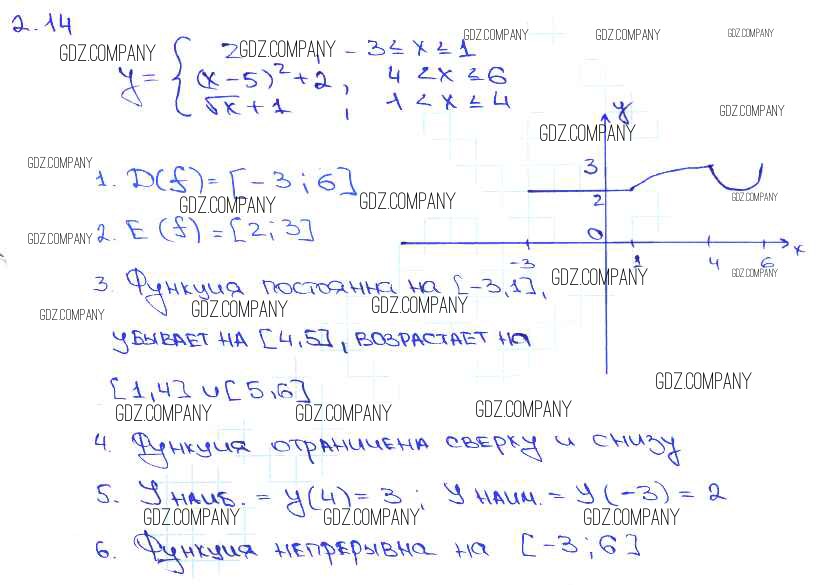 2.14
GDZ.COMPANY GDZ.COMPANY GDZ.COMPANY
GDZ.COMPANY 2GDZ.COMPANY, -3≤x≤1
y={ (x-5)²+2, 4<x≤6
√x+1, 1<x≤4
GDZ.COMPANY
y
GDZ.COMPANY
GDZ.COMPANY
3
1. D(f)=[-3;6]
GDZ.COMPANY GDZ.COMPANY GDZ.COMPANY
2
2. E(f)=[2;3]
GDZ.COMPANY
0
-3 1 4 6 x
3. Функция постоянна на [-3,1],
GDZ.COMPANY GDZ.COMPANY
GDZ.COMPANY GDZ.COMPANY GDZ.COMPANY
убывает на [4,5], возрастает на
[1,4]∪[5,6]
GDZ.COMPANY
GDZ.COMPANY GDZ.COMPANY GDZ.COMPANY
4. Функция ограничена сверху и снизу
5. Yнаиб.=y(4)=3; Yнаим.=y(-3)=2
GDZ.COMPANY GDZ.COMPANY GDZ.COMPANY
6. Функция непрерывна на [-3;6]